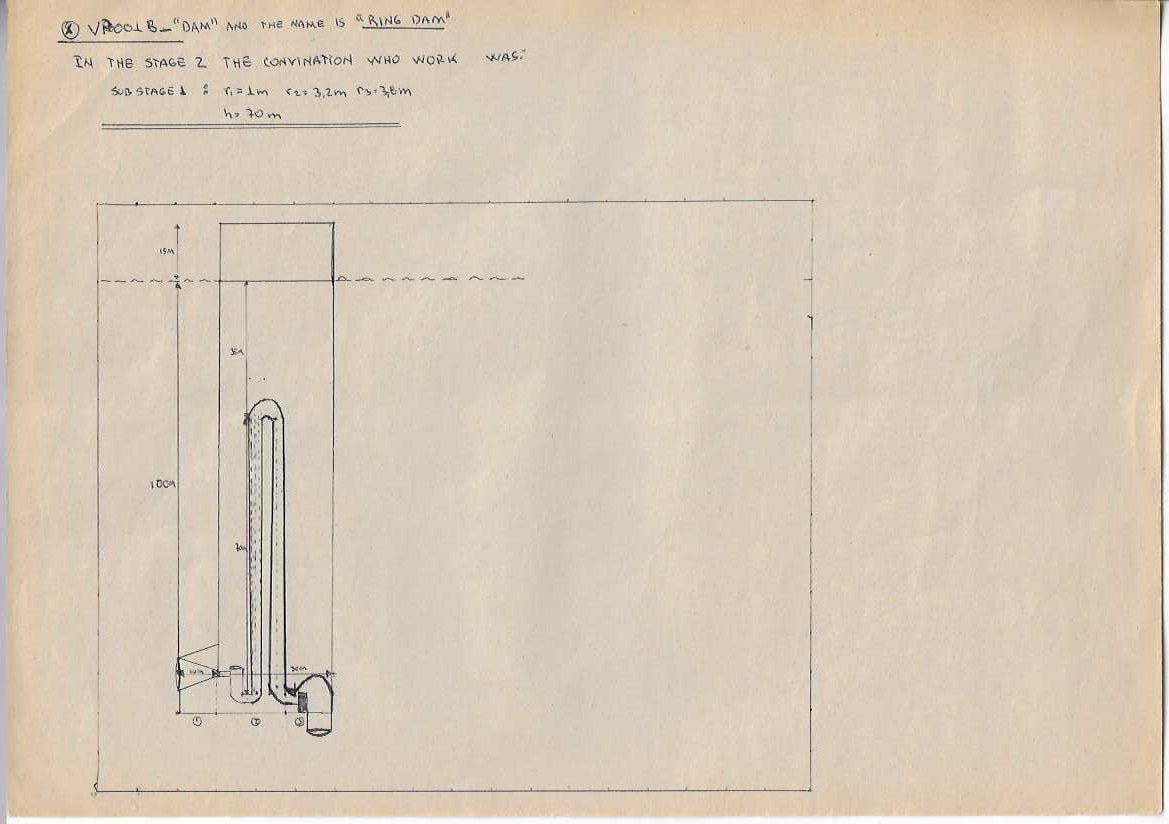 VP001B_"DAM" AND THE NAME IS "RING DAM"
IN THE STAGE 2 THE CONVINATION WHO WORK WAS:
SUB STAGE 1 : r1=1m r2=3,2m r3=3,8m
h=70m
15M
100M
70m
10m
30m
① ② ③